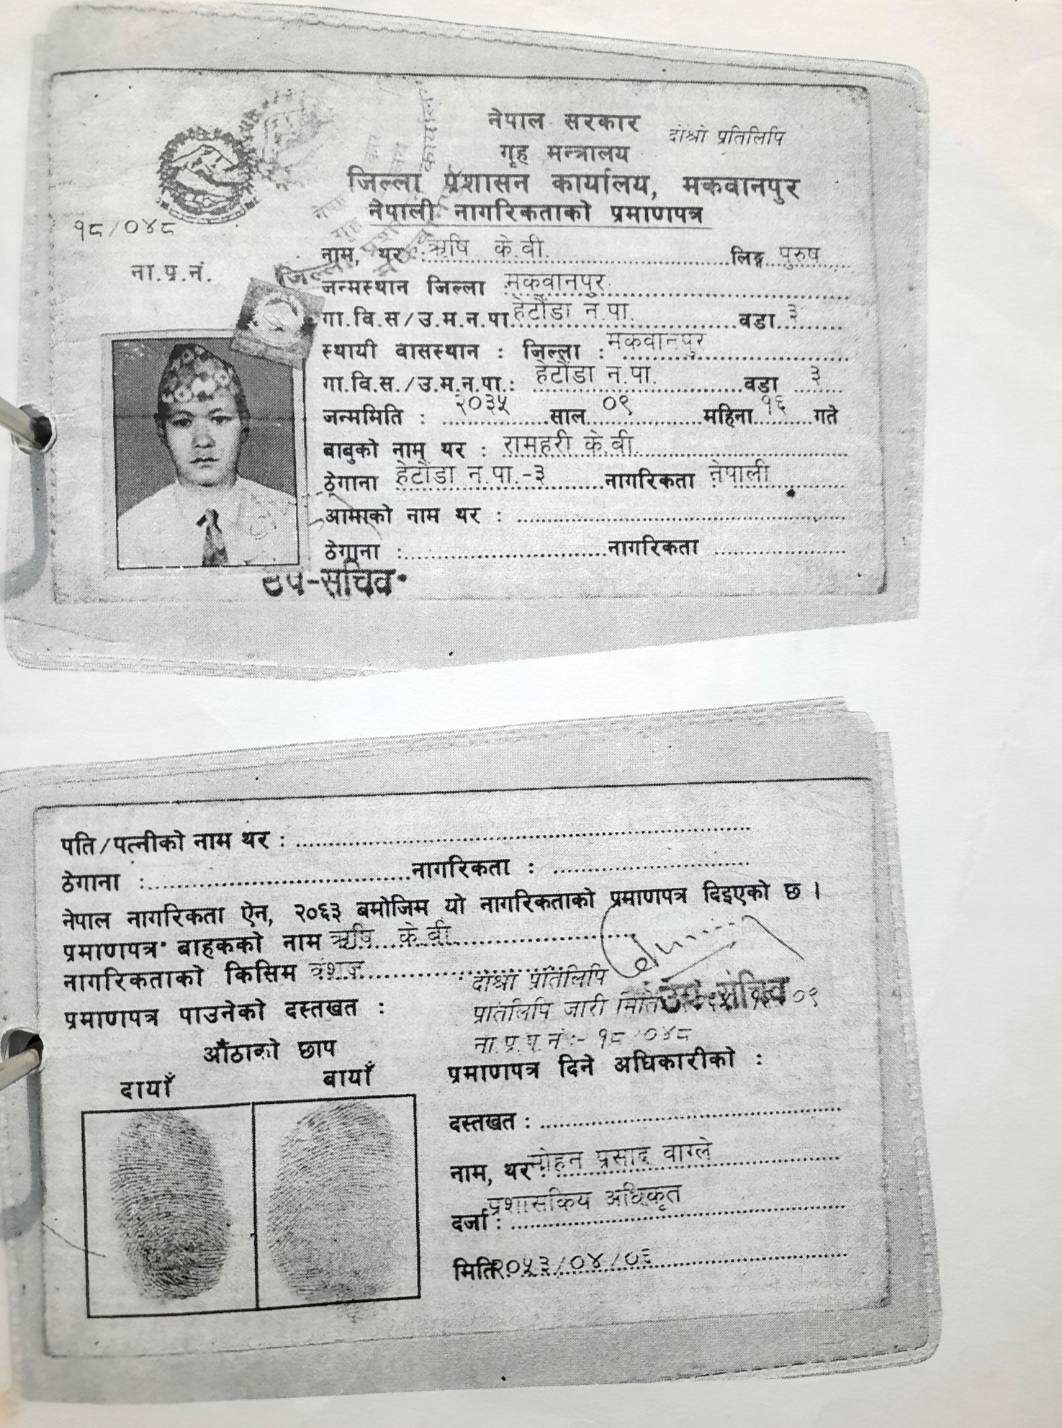 नेपाल सरकार
दोश्रो प्रतिलिपि
गृह मन्त्रालय
जिल्ला प्रशासन कार्यालय, मकवानपुर
नेपाली नागरिकताको प्रमाणपत्र
१८/०४८
ना.प्र.नं.
नाम, थर ऋषि के.बी. लिङ्ग पुरुष
जन्मस्थान जिल्ला मकवानपुर
गा.वि.स/उ.म.न.पा हेटौंडा न.पा. वडा ३
स्थायी वासस्थान : जिल्ला : मकवानपुर
गा.वि.स./उ.म.न.पा.: हेटौंडा न.पा. वडा ३
जन्ममिति : २०३५ साल ०९ महिना १६ गते
बाबुको नाम थर : रामहरी के.बी.
ठेगाना हेटौंडा न.पा.-३ नागरिकता नेपाली
आमाको नाम थर :
ठेगाना : नागरिकता
उप-सचिव
पति/पत्नीको नाम थर :
ठेगाना : नागरिकता :
नेपाल नागरिकता ऐन, २०६३ बमोजिम यो नागरिकताको प्रमाणपत्र दिइएको छ ।
प्रमाणपत्र बाहकको नाम ऋषि के.बी.
नागरिकताको किसिम वंशज
दोश्रो प्रतिलिपि
प्रमाणपत्र पाउनेको दस्तखत :
प्रतिलिपि जारी मिति
उप-सचिव
ना.प्र.प.नं:- १८/०४८
औंठाको छाप
दायाँ बायाँ
प्रमाणपत्र दिने अधिकारीको :
दस्तखत :
नाम, थर मोहन प्रसाद वाग्ले
दर्जा : प्रशासकिय अधिकृत
मिति २०५३/०४/०६